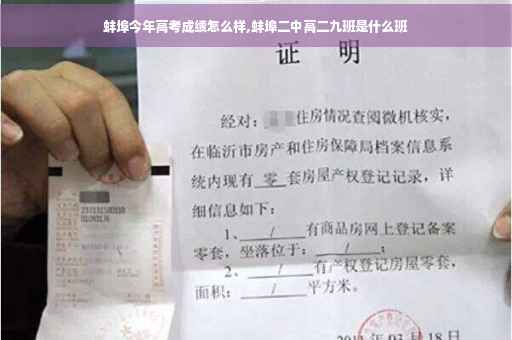 蚌埠今年高考成绩怎么样,蚌埠二中高二九班是什么班
证 明
经对: 住房情况查阅微机核实,
在临沂市房产和住房保障局档案信息系
统内现有 零 套房屋产权登记记录, 详
细信息如下:
1、 / 有商品房网上登记备案
零套, 坐落位于: / ;
2、 / 有产权登记房屋零套,
面积: / 平方米。
03 月 18 日